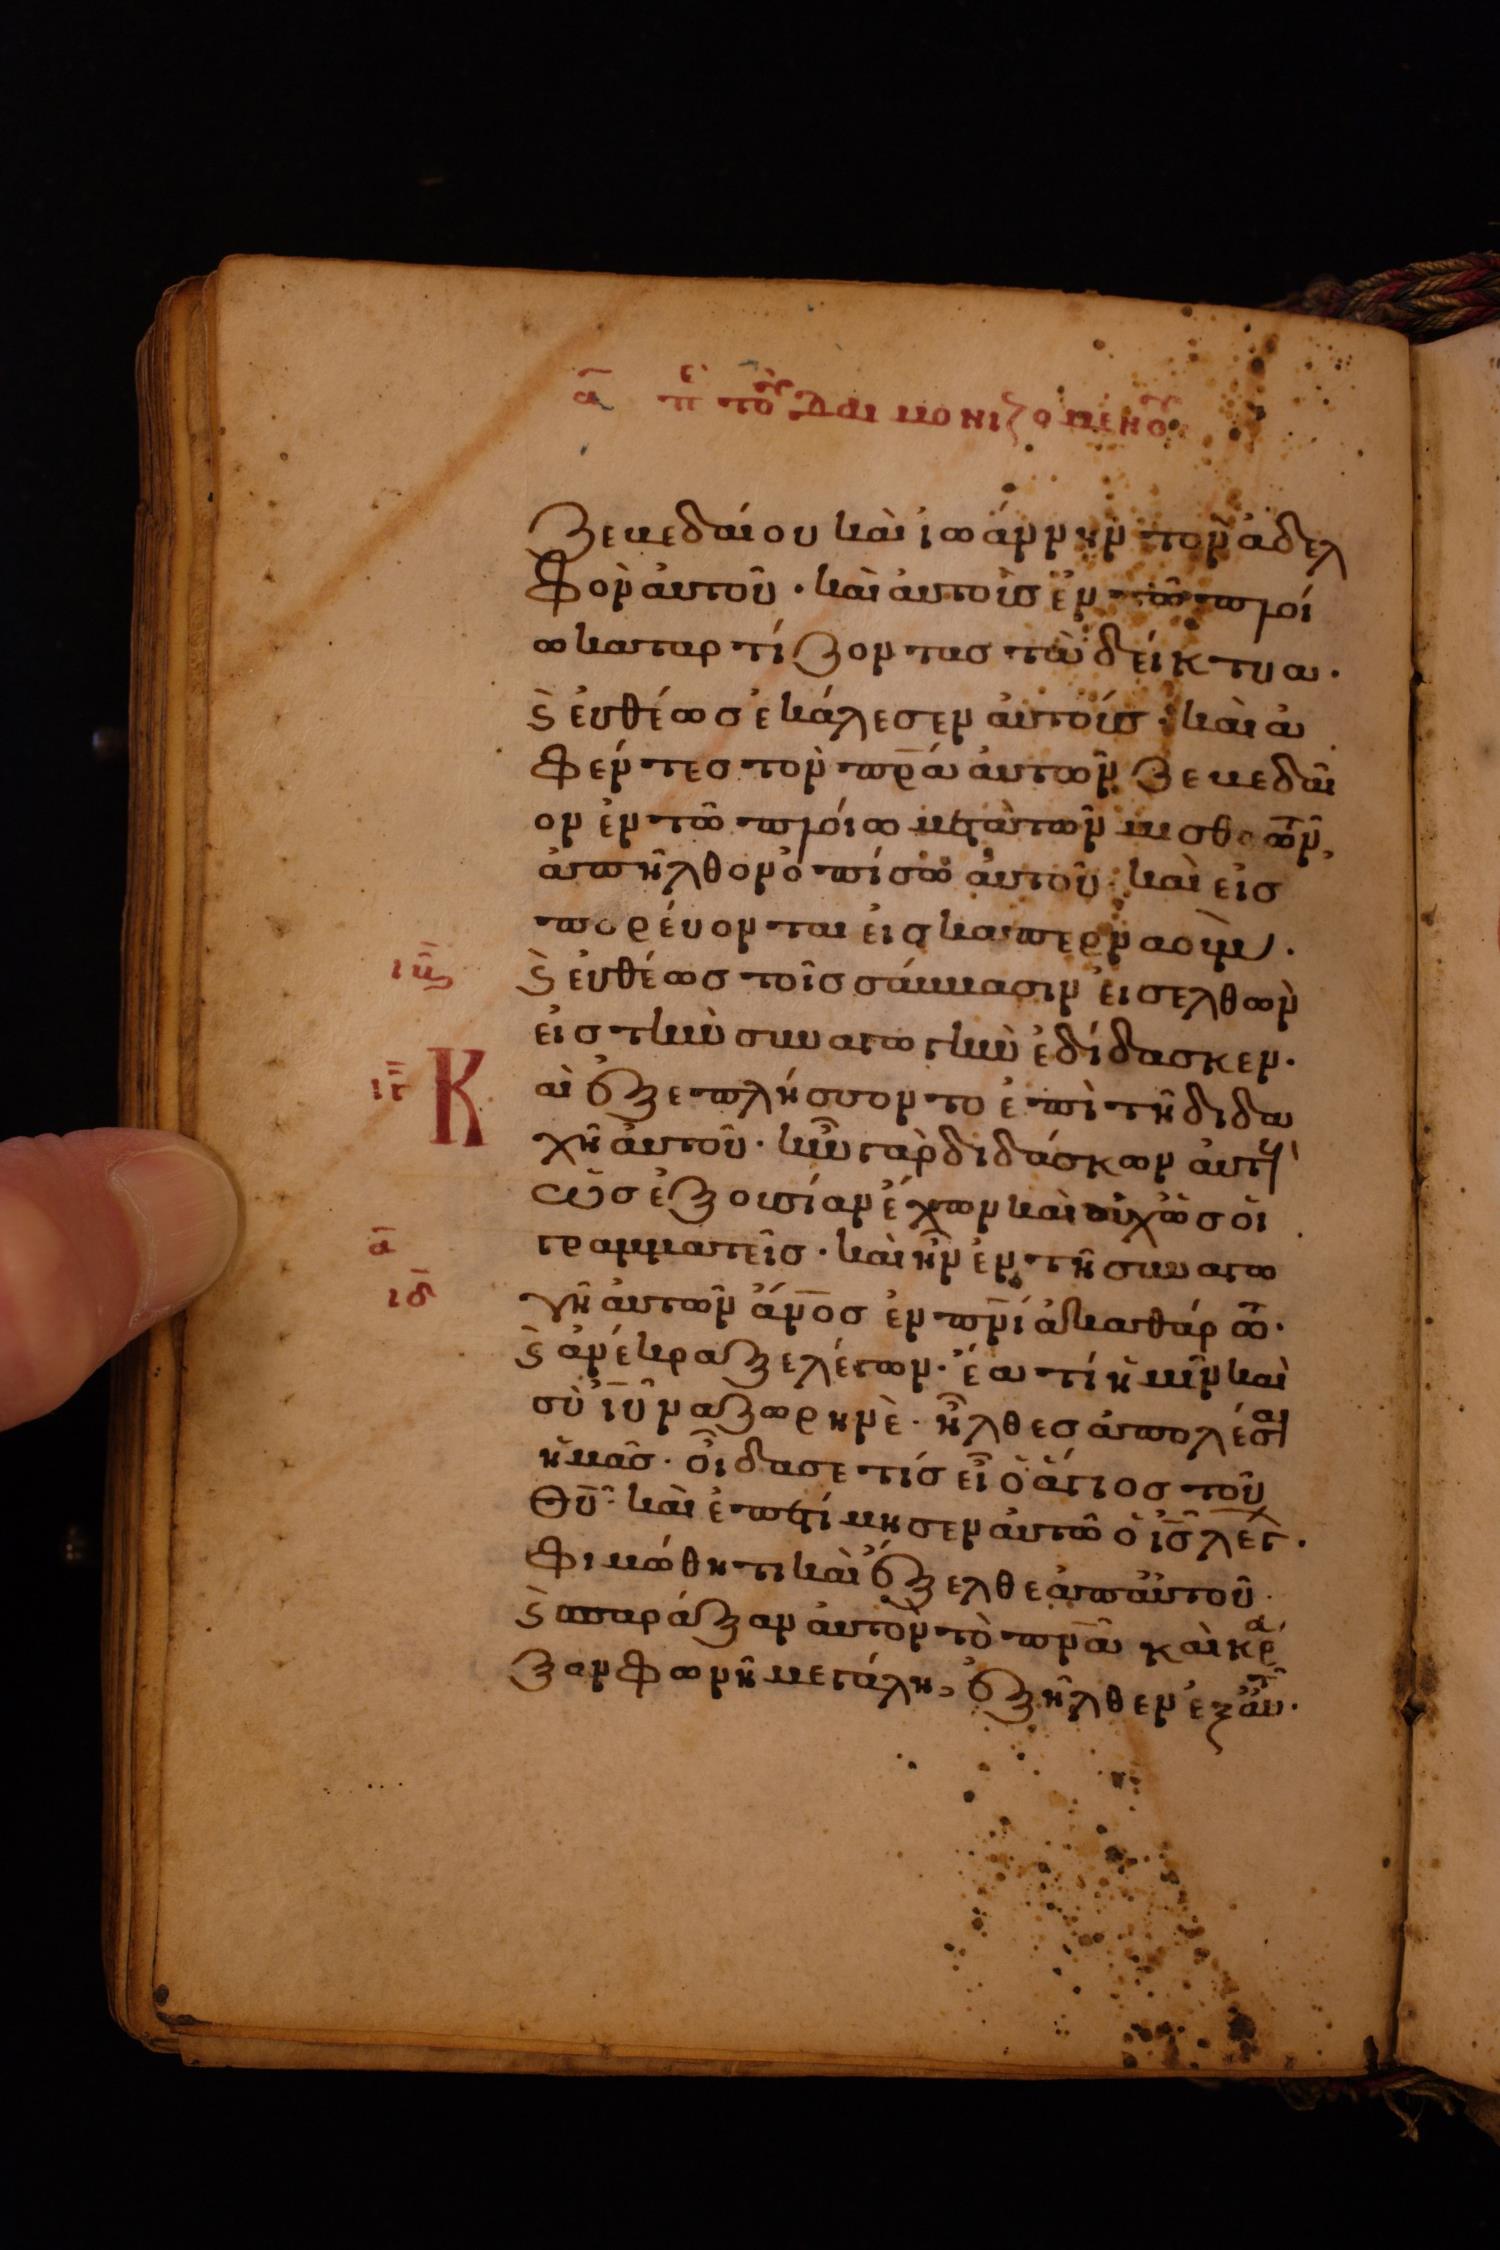 α̅ πε τοῦ δαιμονιζομένου
Ζεβεδαίου καὶ ἰωάννην τὸν ἀδελ
φὸν ἀυτοῦ · καὶ ἀυτοὺς ἐν τῶ πλοί
ω καταρτίζοντας τὰ δείκτυα ·
ϗ̀ ἐυθέως ἐκάλεσεν ἀυτούς · καὶ ἀ
φέντες τὸν πρ̅α ἀυτῶν Ζεβεδαῖ
ον ἐν τῶ πλοίω μετὰ τῶν μισθωτῶν,
ἀπῆλθον ὀπίσω ἀυτοῦ · καὶ εἰσ
πορέυονται εἰς καπερναοὺμ ·
ϗ̀ ἐυθέως τοῖς σάββασιν εἰσελθὼν
εἰς τὴν συναγωγὴν ἐδίδασκεν ·
ιγ̅ Καὶ ἐξεπλήσσοντο ἐπὶ τῆ διδα
χῆ ἀυτοῦ · ἦν γὰρ διδάσκων ἀυτοὺς
ὡς ἐξουσίαν ἔχων καὶ οὐχ ὡς οἱ
α̅ γραμματεῖς · καὶ ἦν ἐν τῆ συναγω
ιδ̅ γῆ ἀυτῶν ἄν̅ος ἐν πν̅ι ἀκαθάρτω ·
ϗ̀ ἀνέκραξε λέγων · ἔα τί ἡμῖν καὶ
σὺ ἰ̅υ ναζωρηνὲ · ἦλθες ἀπολέσαι
ἡμᾶς · οἶδα σε τίς εἶ ὁ ἅγιος τοῦ
θ̅υ · καὶ ἐπετίμησεν ἀυτῶ ὁ ἰ̅ς λεγ ·
φιμώθητι καὶ ἔξελθε ἀπ ἀυτοῦ ·
ϗ̀ σπαράξαν ἀυτὸν τὸ πν̅α καὶ κρά
ξαν φωνῆ μεγάλη, ἐξῆλθεν ἐξ ἀυτ ·